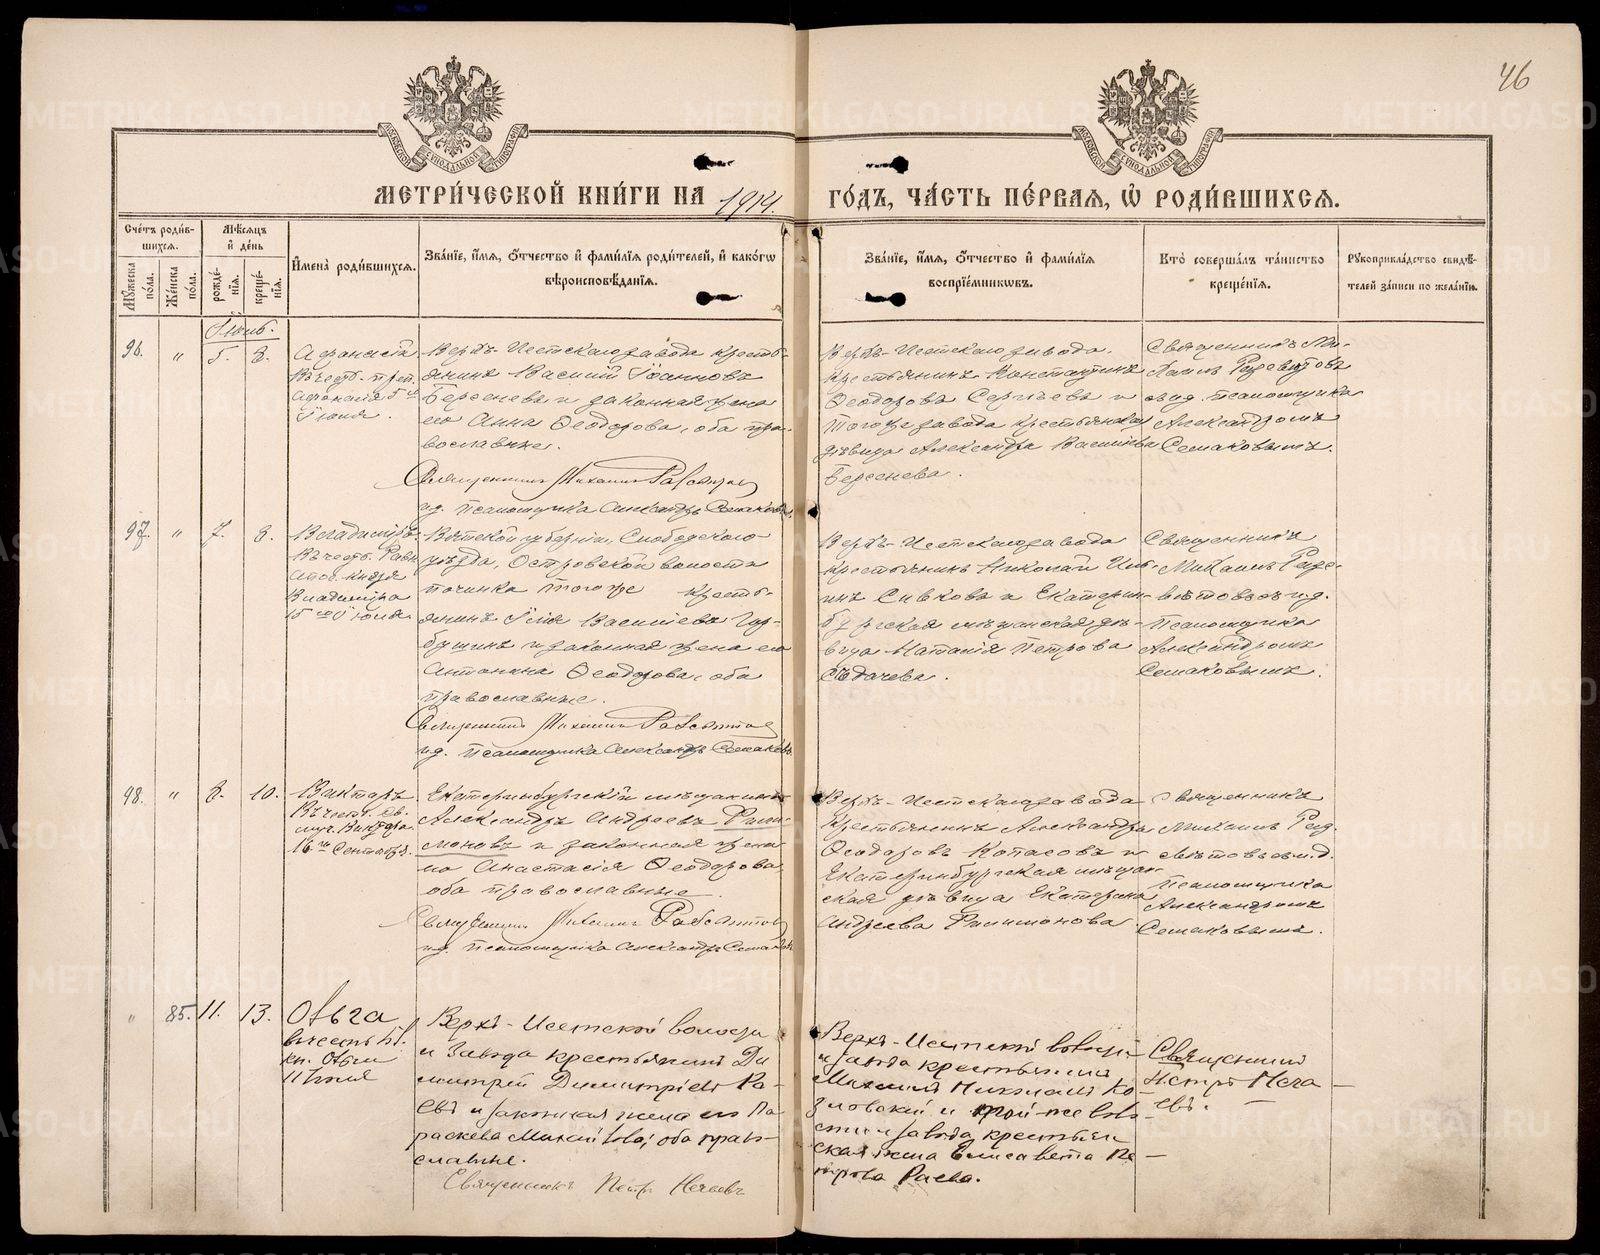 46
МЕТРИ́ЧЕСКОЙ КНИ́ГИ НА 1914. ГО́ДЪ, ЧА́СТЬ ПЕ́РВАЯ, Ѡ РОДИ́ВШИХСЯ.
Сче́тъ роди́в-
шихся.
Му́жеска по́ла.
Же́нска по́ла.
Мѣ́сяцъ
и́ де́нь
рожде́нія.
креще́нія.
И҆мена̀ роди́вшихся.
Зва́ніе, и҆́мя, о҆́тчество и҆ фами́лія роди́телей, и҆ како́гѡ
вѣроисповѣ́данія.
Зва́ніе, и҆́мя, о҆́тчество и҆ фами́лія
воспріе́мникѡвъ.
Кто̀ соверша́лъ та́инство
креще́нія.
Рукоприкла́дство свидѣ́-
телей за́писи по жела́нію.
Іюль.
96. " 5. 8.
Афанасій
Въ честь преп.
Афанасія 5го
Іюля.
Верхъ-Исетскаго завода кресть-
янинъ Василій Іоанновъ
Берсеневъ и законная жена
его Анна Ѳеодорова, оба пра-
вославные.
Священникъ Михаилъ
и. д. псаломщика Александръ Семаковъ.
Верхъ-Исетскаго завода
крестьянинъ Константинъ
Ѳеодоровъ Сергѣевъ и
тогоже завода крестьянская
дѣвица Александра Васильева
Берсенева.
Священникъ Ми-
хаилъ
и и. д. псаломщика
Александромъ
Семаковымъ.
97. " 7. 8.
Владиміръ
Въ честь Равн.
апос. князя
Владиміра
15го Іюля.
Вятской губерніи, Слободского
уѣзда, Островской волости
починка тогоже кресть-
янинъ Илія Васильевъ Гор-
бушинъ и законная жена его
Антонина Ѳеодорова, оба
православные.
Священникъ Михаилъ
и. д. псаломщика Александръ Семаковъ
Верхъ-Исетскаго завода
крестьянинъ Николай
Сивковъ и Екатерин-
бургская мѣщанская дѣ-
вица Наталія Петрова
Священникъ
Михаилъ
и. д.
псаломщика
Александромъ
Семаковымъ.
98. " 8. 10.
Викторъ
Въ честь св.
муч. Виктора
16го Сентября.
Екатеринбургскій мѣщанинъ
Александръ Андреевъ Фили-
моновъ и законная жена
его Анастасія Ѳеодорова,
оба православные
Священникъ Михаилъ
и. д. псаломщика Александръ Семаковъ
Верхъ-Исетскаго завода
крестьянинъ Александръ
Ѳеодоровъ Копасовъ и
Екатеринбургская мѣщан-
ская дѣвица Екатерина
Андреева Филимонова
Священникъ
Михаилъ
и. д.
псаломщика
Александромъ
Семаковымъ.
" 85. 11. 13.
Ольга
въ честь бл.
кн. Ольги
11 Іюля
Верхъ-Исетской волости
и завода крестьянинъ Ди-
митрій Димитріевъ Ра-
евъ и законная жена его Па-
раскева Михайлова, оба право-
славные.
Священникъ Петръ Нечаевъ
Верхъ-Исетской волости
и завода крестьянинъ
Михаилъ Николаевъ Ко-
зловскій и той-же воло-
сти и завода крестьян-
ская жена Елисавета Пе-
трова Раева.
Священникъ
Петръ Неча-
евъ.